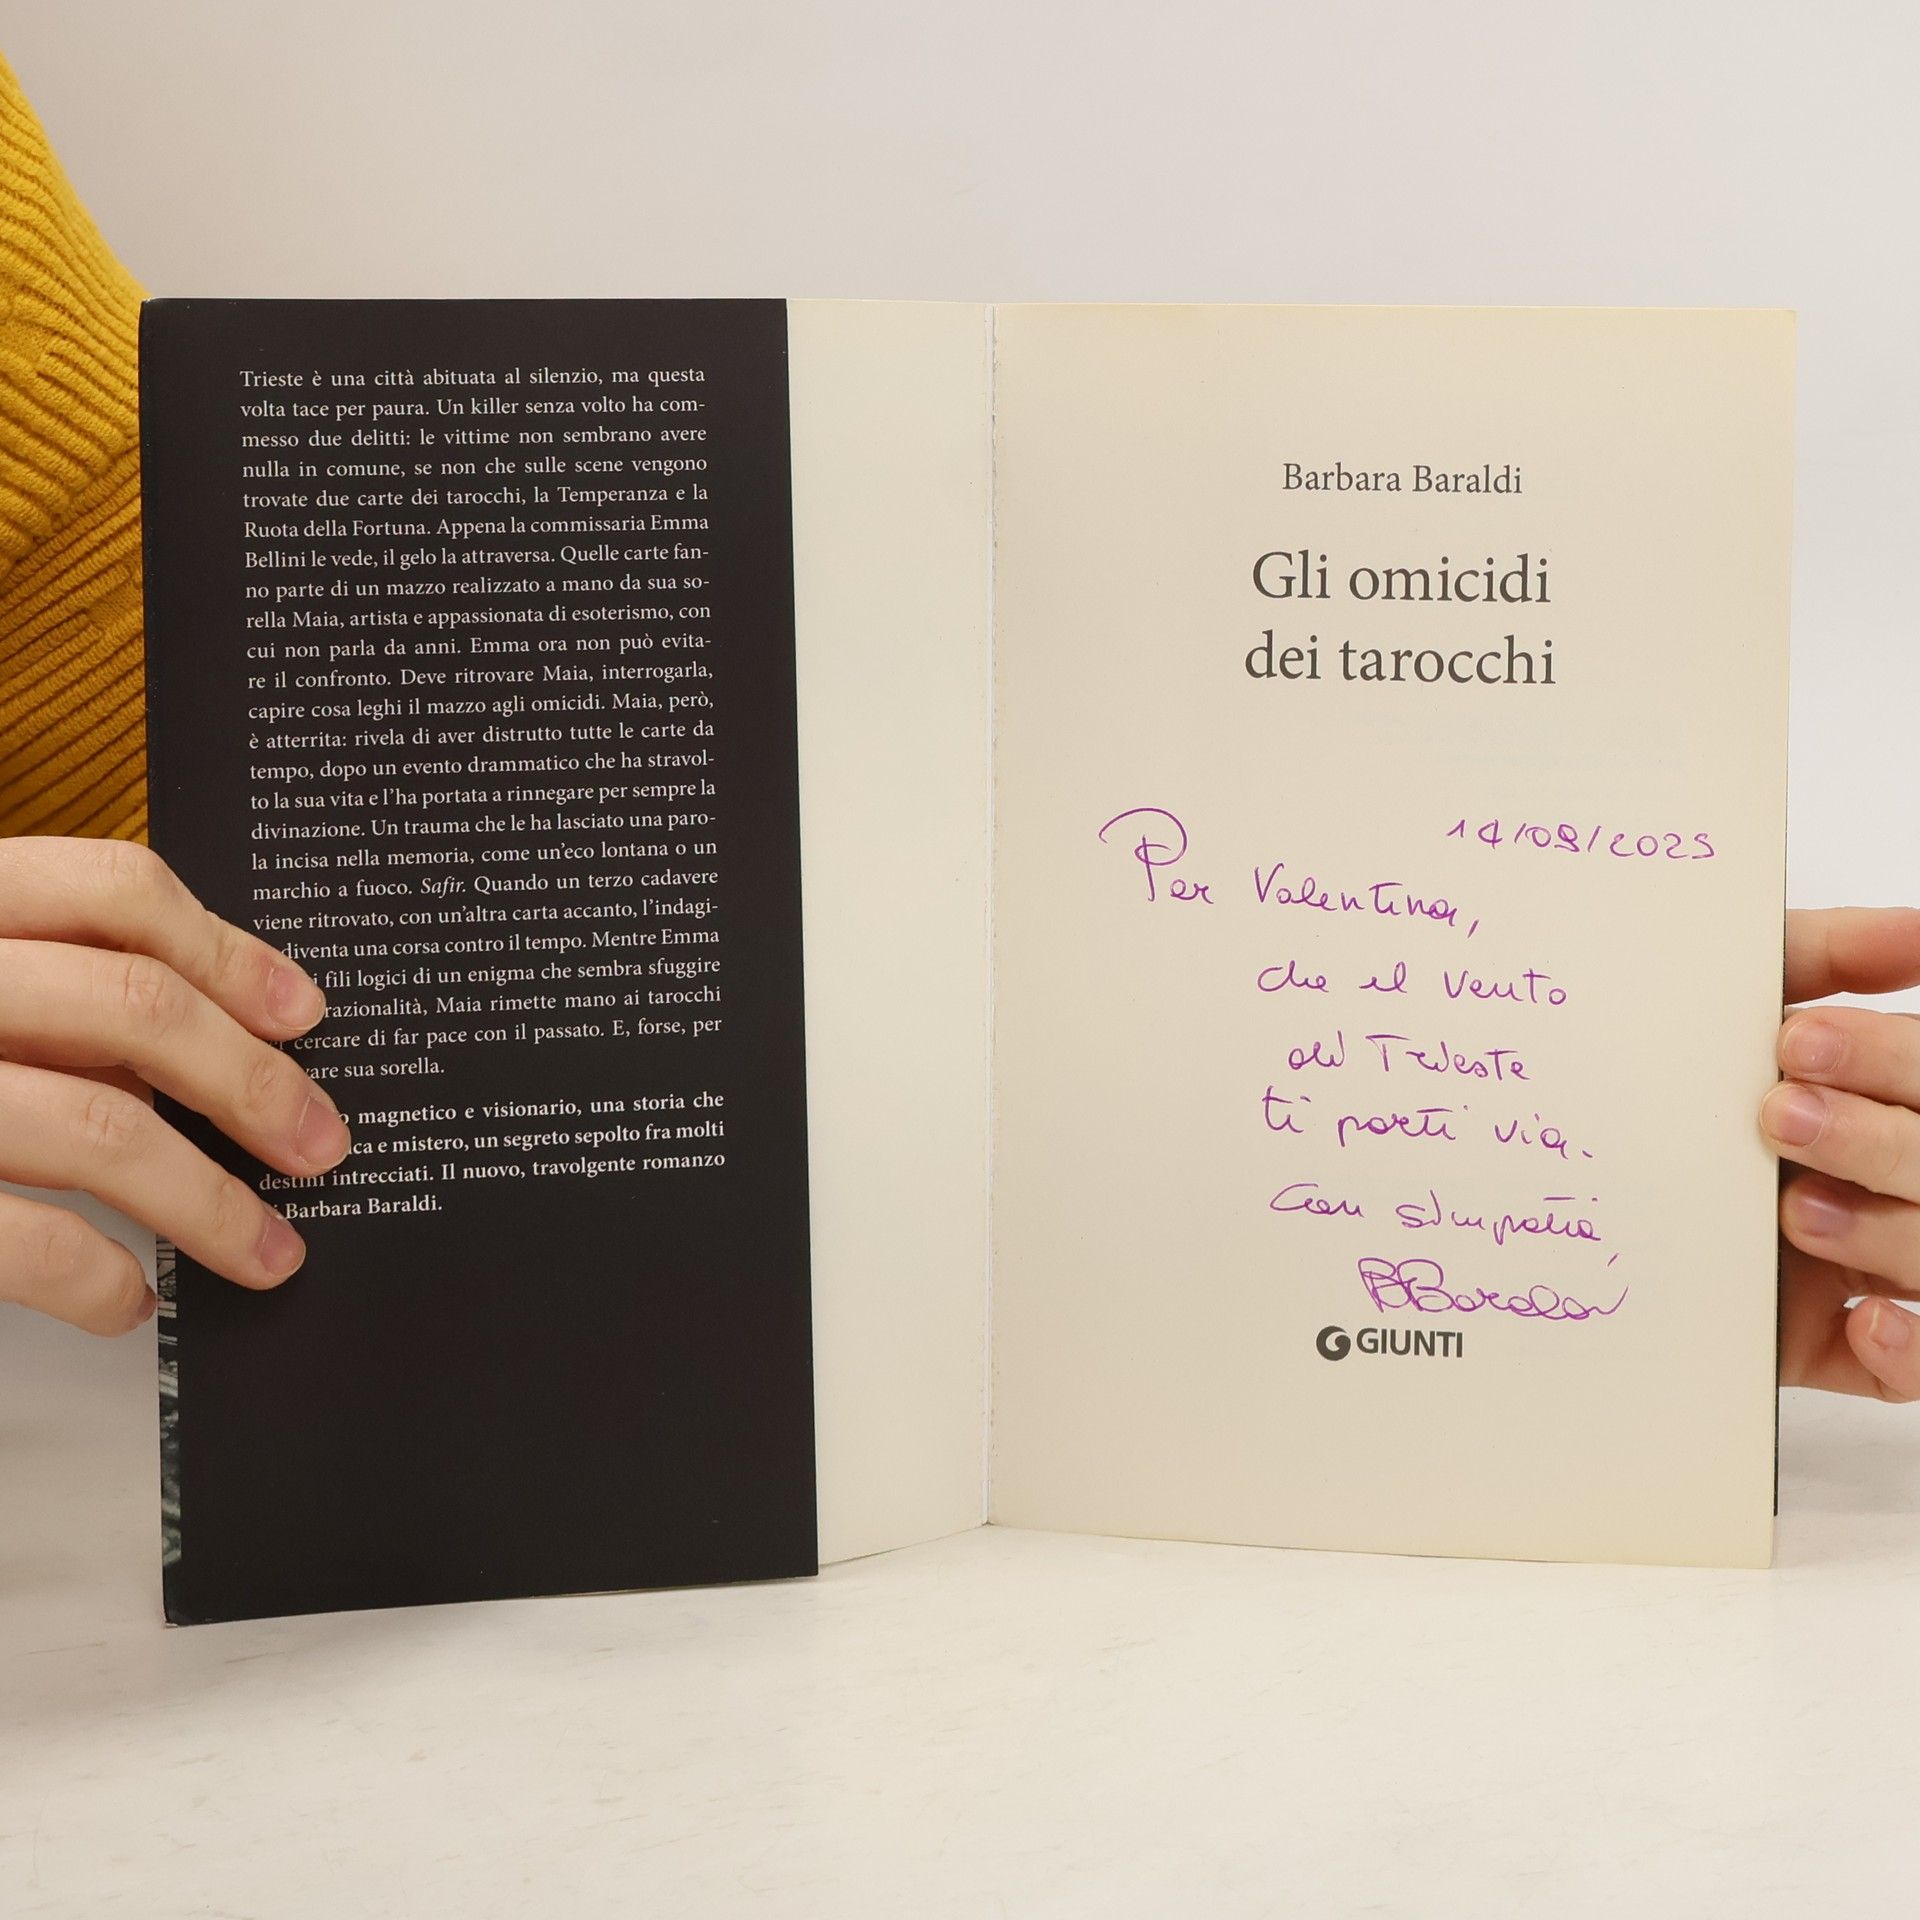 Trieste è una città abituata al silenzio, ma questa
volta tace per paura. Un killer senza volto ha com-
messo due delitti: le vittime non sembrano avere
nulla in comune, se non che sulle scene vengono
trovate due carte dei tarocchi, la Temperanza e la
Ruota della Fortuna. Appena la commissaria Emma
Bellini le vede, il gelo la attraversa. Quelle carte fan-
no parte di un mazzo realizzato a mano da sua so-
rella Maia, artista e appassionata di esoterismo, con
cui non parla da anni. Emma ora non può evita-
re il confronto. Deve ritrovare Maia, interrogarla,
capire cosa leghi il mazzo agli omicidi. Maia, però,
è atterrita: rivela di aver distrutto tutte le carte da
tempo, dopo un evento drammatico che ha stravol-
to la sua vita e l'ha portata a rinnegare per sempre la
divinazione. Un trauma che le ha lasciato una paro-
la incisa nella memoria, come un'eco lontana o un
marchio a fuoco. Safir. Quando un terzo cadavere
viene ritrovato, con un'altra carta accanto, l'indagi-
diventa una corsa contro il tempo. Mentre Emma
i fili logici di un enigma che sembra sfuggire
razionalità, Maia rimette mano ai tarocchi
cercare di far pace con il passato. E, forse, per
are sua sorella.
magnetico e visionario, una storia che
e mistero, un segreto sepolto fra molti
destini intrecciati. Il nuovo, travolgente romanzo
Barbara Baraldi.
Barbara Baraldi
Gli omicidi
dei tarocchi
14/09/2025
Per Valentina,
che il vento
di Trieste
ti porti via.
Con simpatia,
BBaraldi
GIUNTI